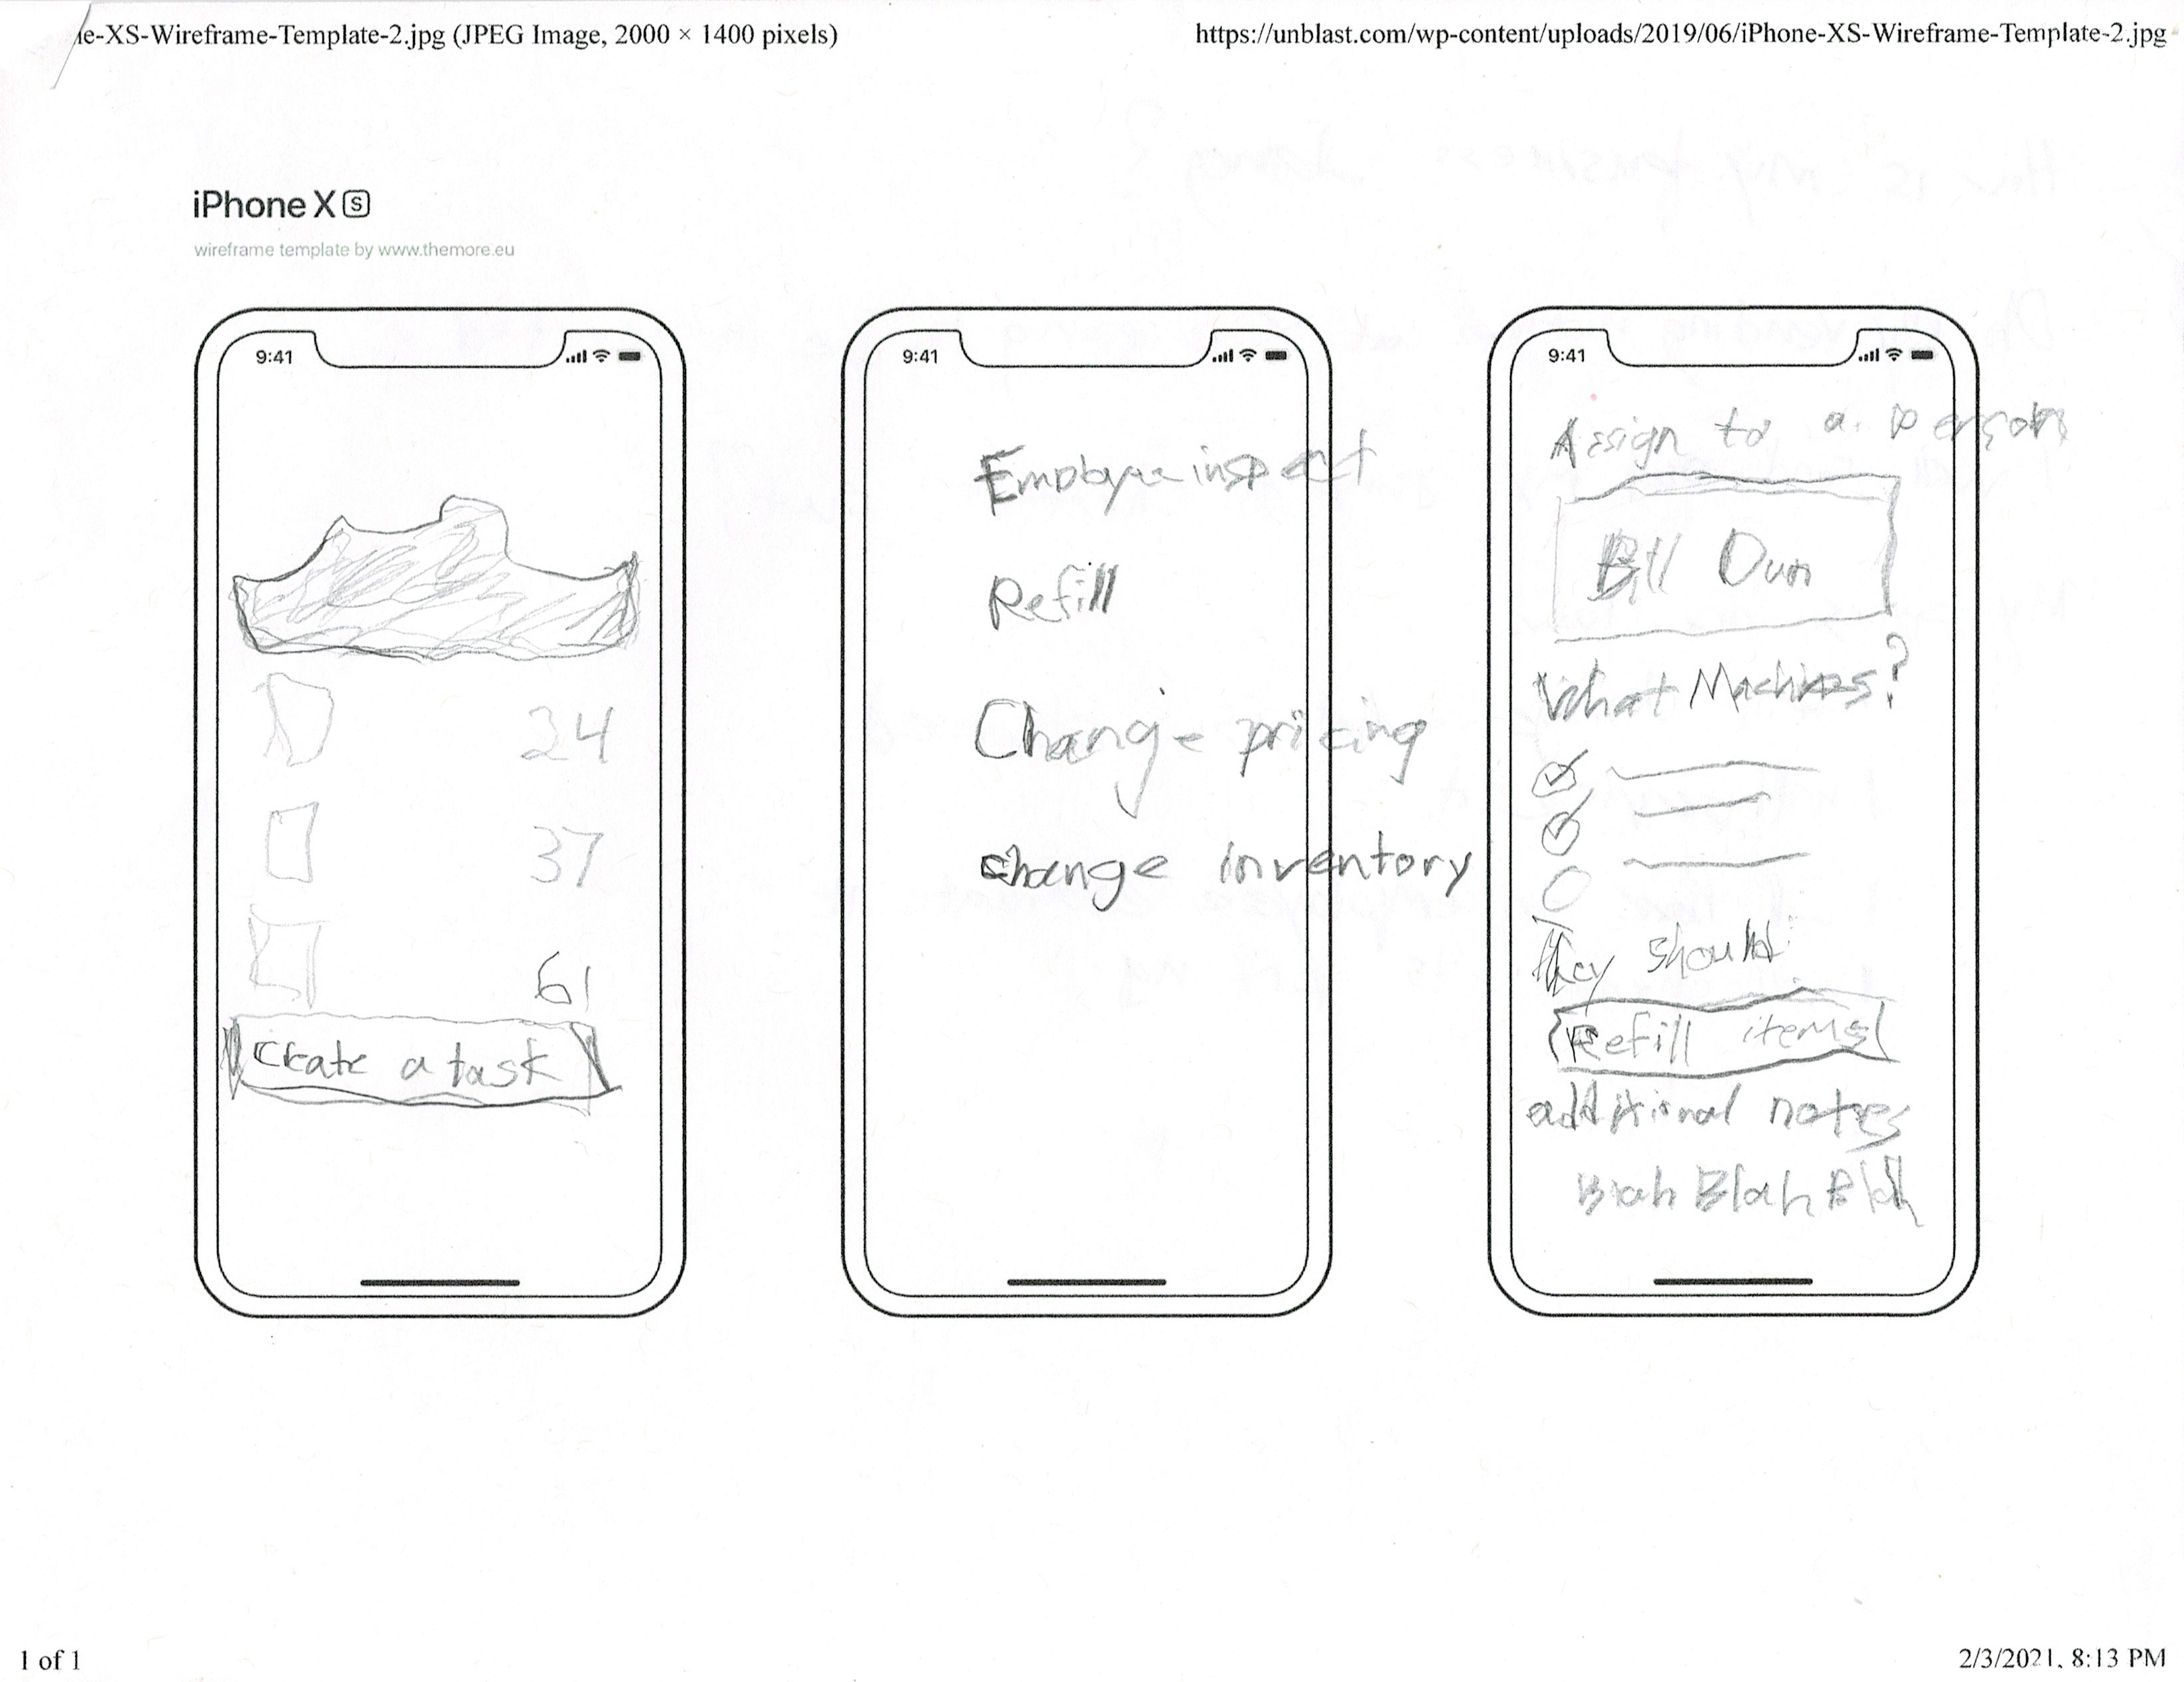 e-XS-Wireframe-Template-2.jpg (JPEG Image, 2000 × 1400 pixels)
https://unblast.com/wp-content/uploads/2019/06/iPhone-XS-Wireframe-Template-2.jpg
iPhone X S
wireframe template by www.themore.eu
9:41
24
37
61
Create a task
9:41
Employee inspect
Refill
Change pricing
change inventory
9:41
Assign to a person
Bill Dun
What Machines?
They should
Refill items
additional notes
Blah Blah Blah
1 of 1
2/3/2021, 8:13 PM